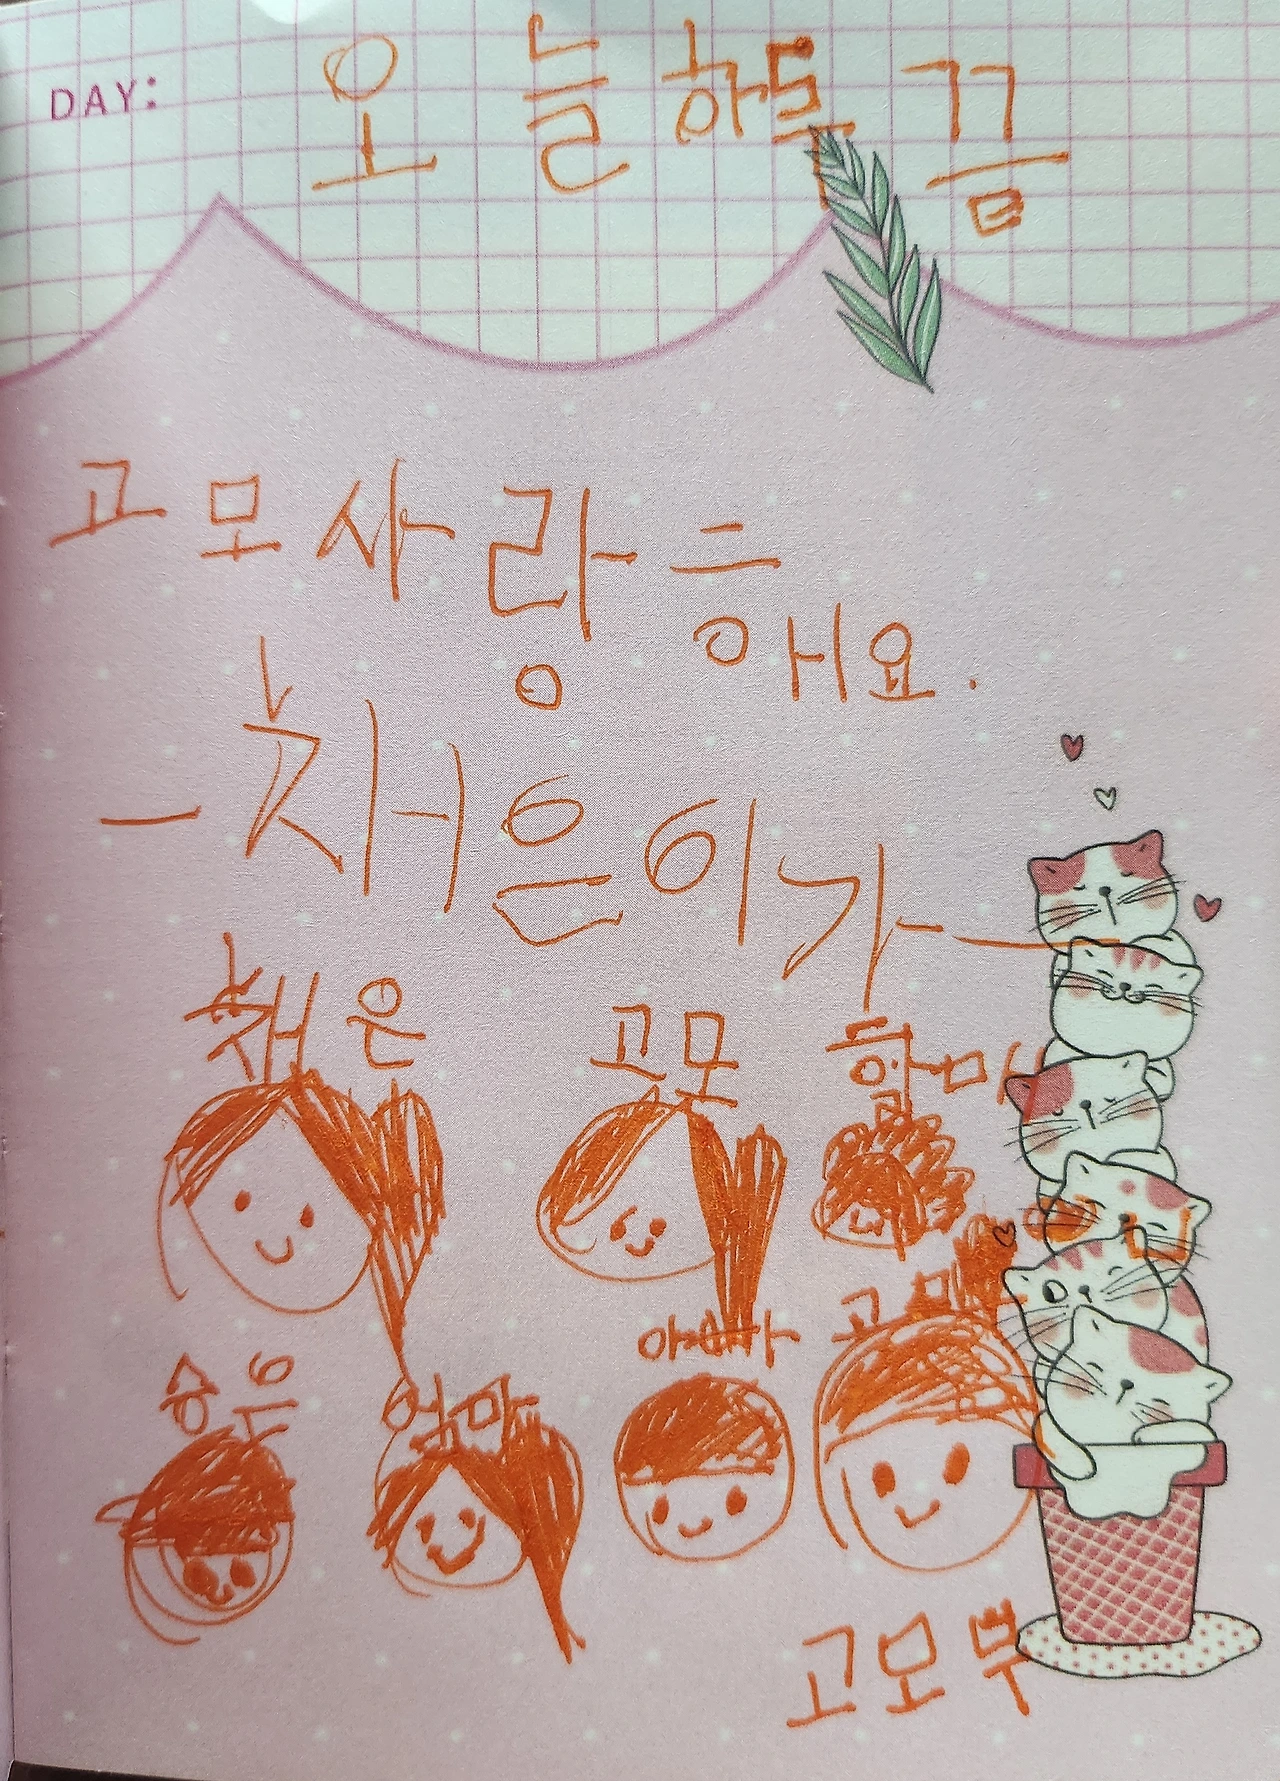 DAY:
오늘하도 끔
고모사랑
해요.
- 채은이가 -
채은 고모 할머
아빠 고모
엄마
고모부